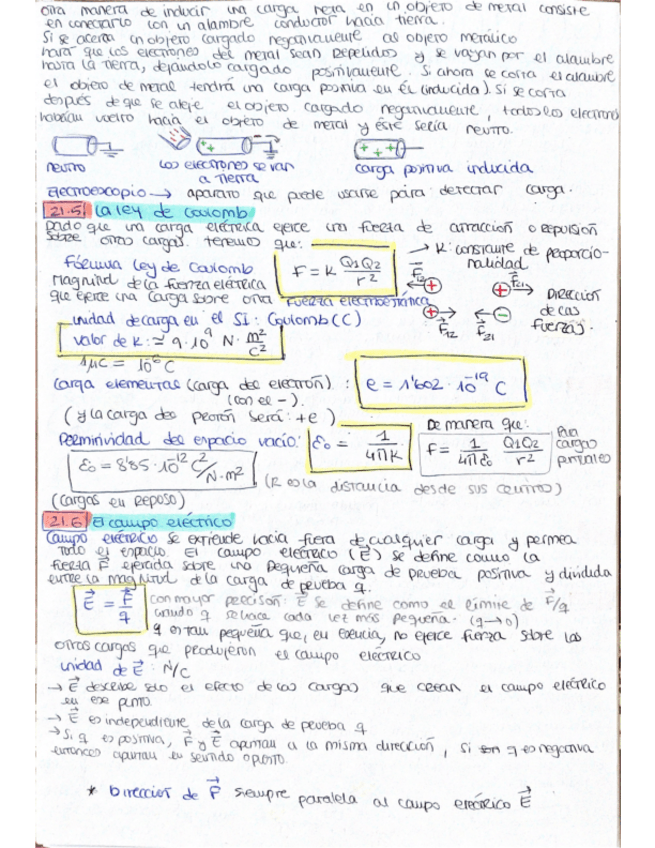 otra manera de inducir una carga neta en un objeto de metal consiste
en conectarlo con un alambre conductor hacia tierra.
Si se acerca un objeto cargado negativamente al objeto metálico
hará que los electrones del metal sean repelidos y se vayan por el alambre
hasta la tierra, dejándolo cargado positivamente. Si ahora se corta el alambre
el objeto de metal tendrá una carga positiva en él (inducida). Si se corta
después de que se aleje el objeto cargado negativamente, todos los electrones
habrían vuelto hacia el objeto de metal y éste sería neutro.
neutro
los electrones se van
a tierra
carga positiva inducida
Electroescopio → aparato que puede usarse para detectar carga.
21.5 La ley de Coulomb
Dado que una carga eléctrica ejerce una fuerza de atracción o repulsión
sobre otras cargas. tenemos que:
→ K: constante de proporcio-
nalidad
Fórmula Ley de Coulomb
Magnitud de la fuerza eléctrica
que ejerce una carga sobre otra
F = K Q1Q2 / r²
Fuerza electroestática
F12 + + F21
+ F12 F21 −
Dirección
de las
fuerzas.
unidad de carga en el SI: Coulomb (C)
valor de K: ≃ 9·10⁹ N· m²/C²
1μC = 10⁻⁶ C
Carga elemental (carga del electrón) :
(con el -).
e = 1'602 · 10⁻¹⁹ C
(y la carga del protón será: +e)
Permitividad del espacio vacío:
ε₀ = 1 / 4πK
De manera que:
F = 1/4πε₀ Q1Q2/r²
Para
cargas
puntuales
ε₀ = 8'85 · 10⁻¹² C²/N·m²
(R es la distancia desde sus centros)
(cargas en reposo)
21.6 El campo eléctrico
Campo eléctrico se extiende hacia fuera de cualquier carga y permea
todo el espacio. El campo eléctrico (E⃗) se define como la
fuerza F⃗ ejercida sobre una pequeña carga de prueba positiva y dividida
entre la magnitud de la carga de prueba q.
E⃗ = F⃗/q
con mayor precisión: E⃗ se define como el límite de F⃗/q
cuando q se hace cada vez más pequeña. (q→0)
q es tan pequeña que, en esencia, no ejerce fuerza sobre las
otras cargas que produjeron el campo eléctrico
unidad de E⃗ : N/C
→ E⃗ describe solo el efecto de las cargas que crean el campo eléctrico
en ese punto.
→ E⃗ es independiente de la carga de prueba q
→ Si q es positiva, F⃗ y E⃗ apuntan a la misma dirección, si q es negativa
entonces apuntan en sentido opuesto.
* Dirección de F⃗ siempre paralela al campo eléctrico E⃗